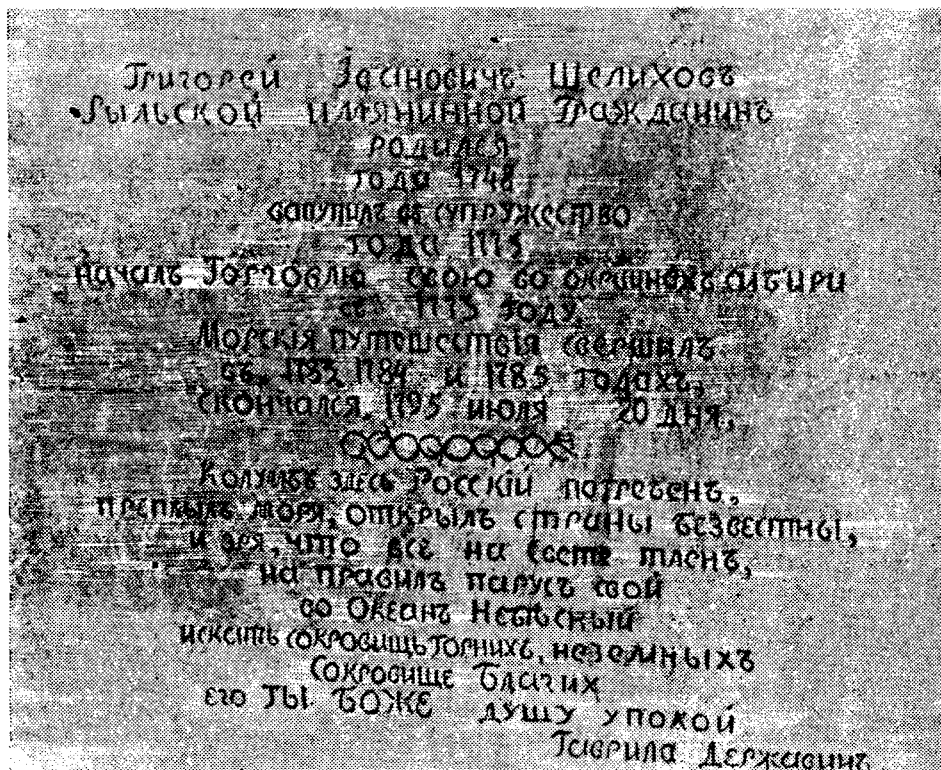 Григорей Iвановичъ Шелиховъ
Рыльской имянинной Гражданинъ
родился
года 1748
вступилъ въ супружество
года 1775
началъ Торговлю свою во окраинахъ сибири
въ 1773 году
Морскiя путешествiя свершилъ
въ 1783, 1784 и 1785 годахъ,
скончался, 1795 июля 20 дня,
Колумбъ здесь Росскiй погребенъ,
преплылъ моря, открылъ страны безвестны,
и зря, что всё на свете тленъ,
на правилъ парусъ свой
во Океанъ Небесный
искать сокровищь горнихъ, неземныхъ
Сокровище Благих
его ТЫ БОЖЕ душу упокой
Гаврила Державинъ